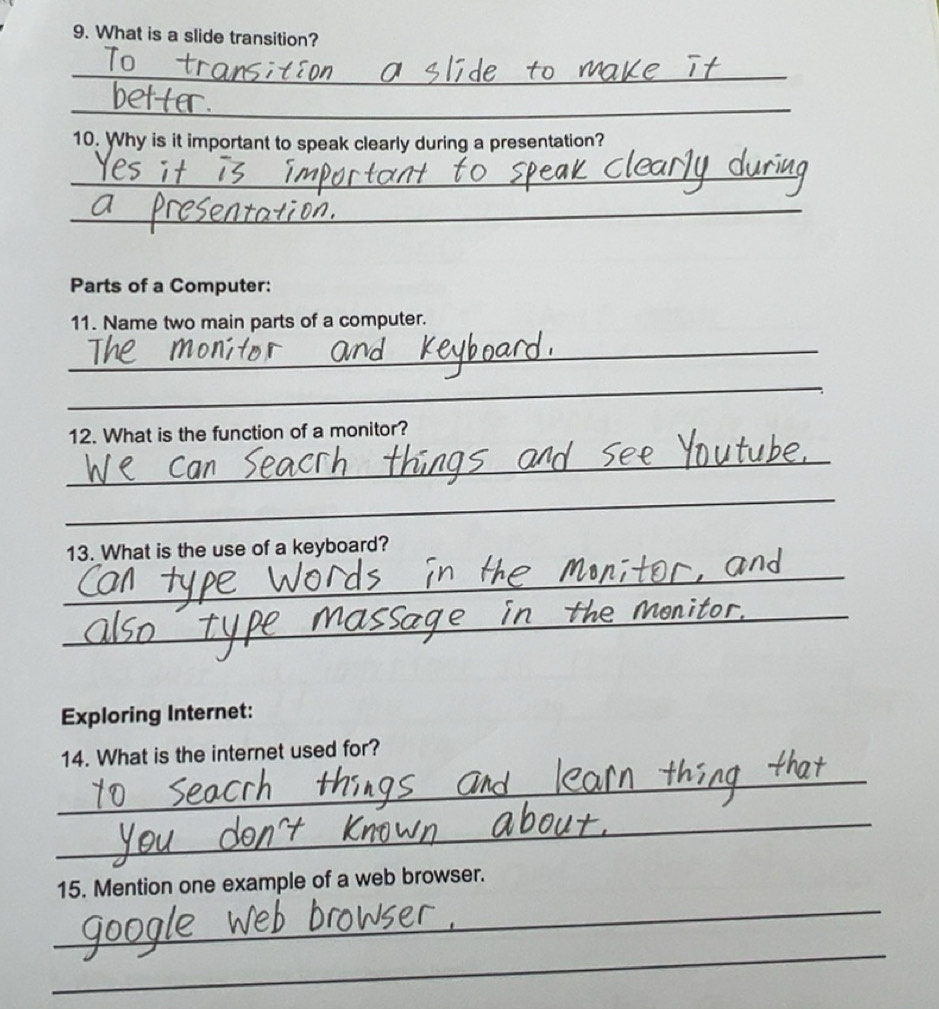 9. What is a slide transition?
To transition a slide to make it
better.
10. Why is it important to speak clearly during a presentation?
Yes it is important to speak clearly during
a presentation.
Parts of a Computer:
11. Name two main parts of a computer.
The monitor and keyboard.
12. What is the function of a monitor?
We can seacrh things and see Youtube.
13. What is the use of a keyboard?
Can type words in the monitor, and
also type massage in the monitor.
Exploring Internet:
14. What is the internet used for?
to seacrh things and learn thing that
you don't known about.
15. Mention one example of a web browser.
google web browser.